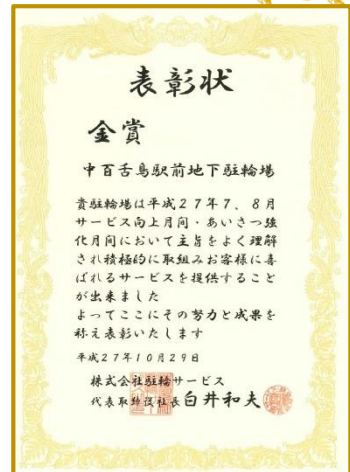 表彰状
金賞
中百舌鳥駅前地下駐輪場
貴駐輪場は平成27年7、8月
サービス向上月間・あいさつ強
化月間において主旨をよく理解
され積極的に取組みお客様に喜
ばれるサービスを提供すること
が出来ました
よってここにその努力と成果を
称え表彰いたします
平成27年10月29日
株式会社駐輪サービス
代表取締役社長白井和夫